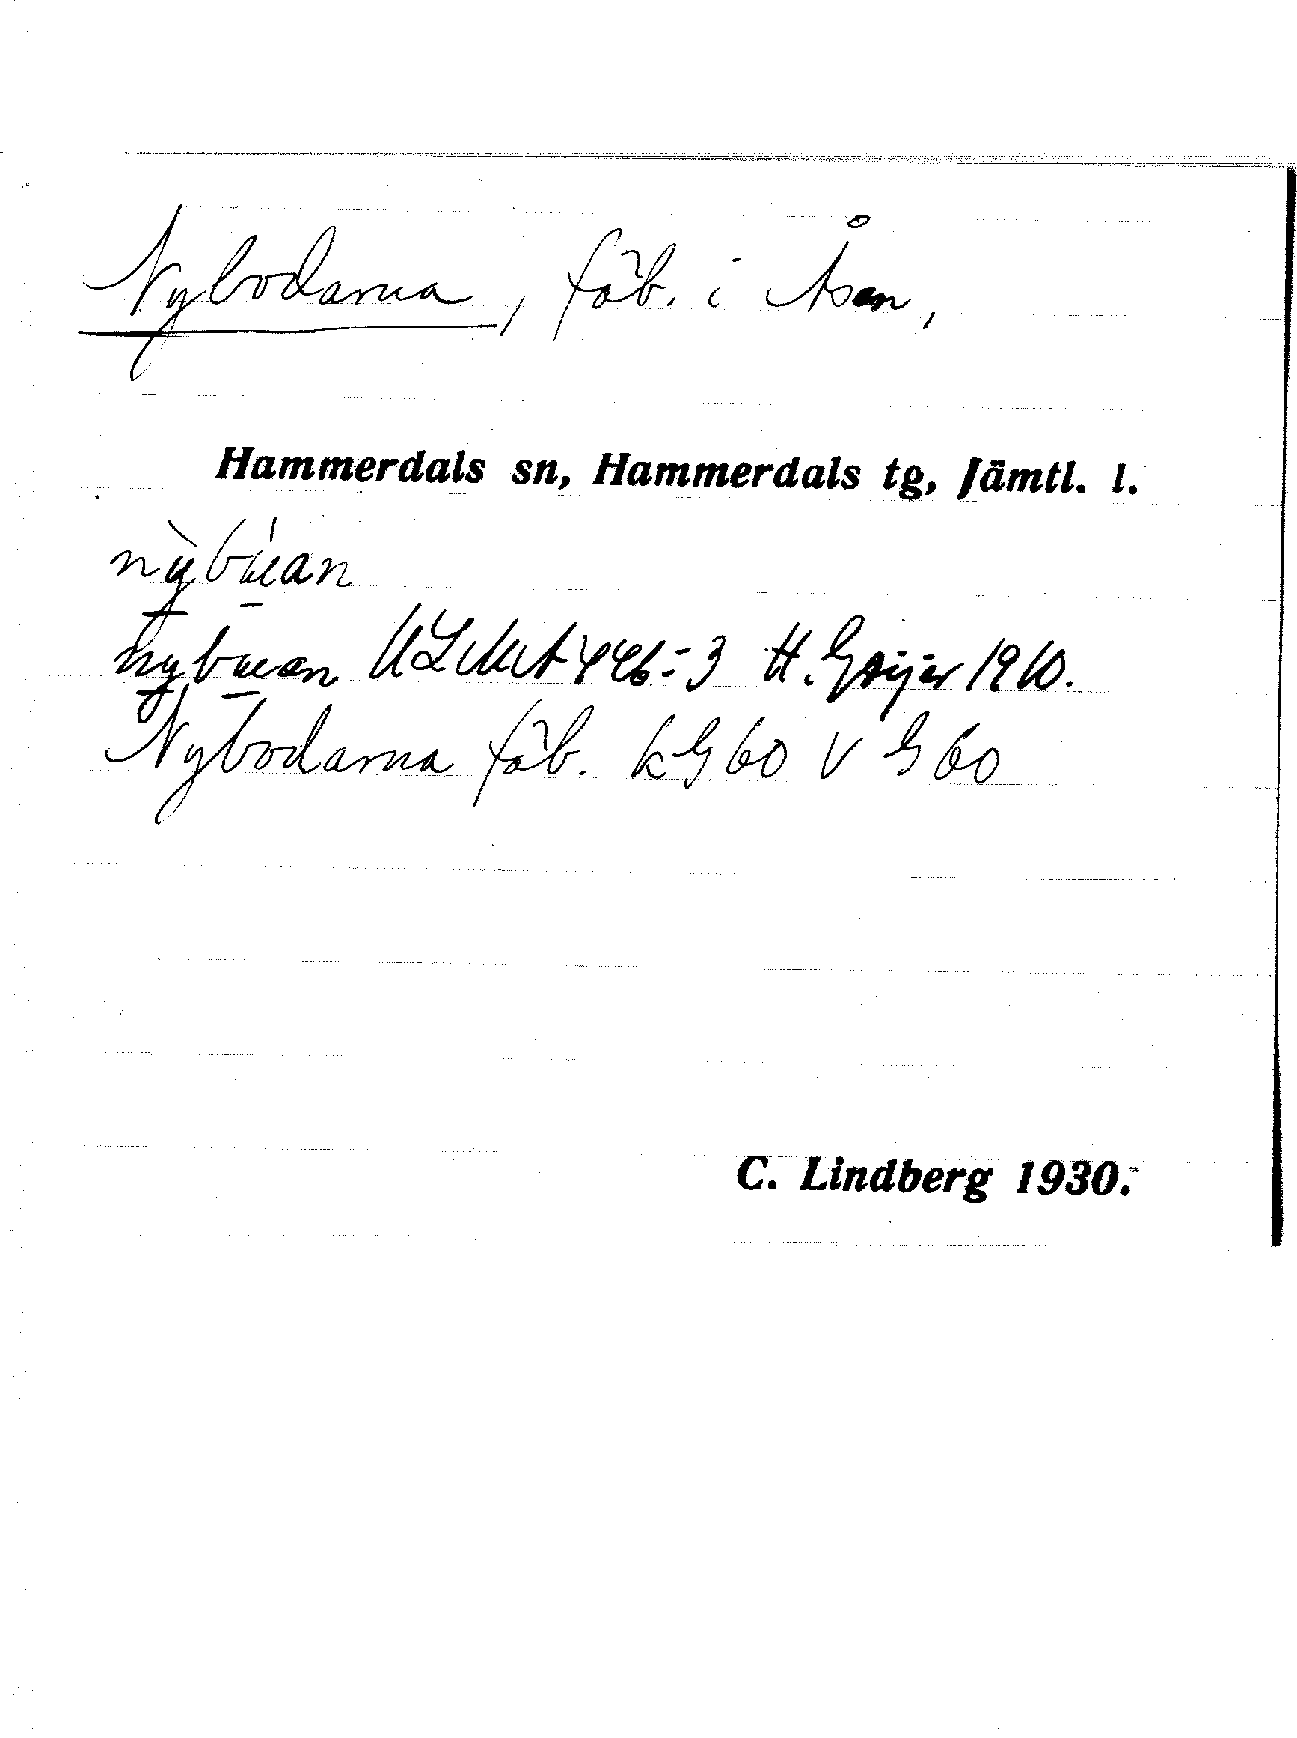 Nybodarna, fäb. i Åsen,
Hammerdals sn, Hammerdals tg, Jämtl. l.
nỳbúan
nybuan ULMA 446:3 H. Geijer 1910.
Nybodarna fäb. kG60 V G60
C. Lindberg 1930.